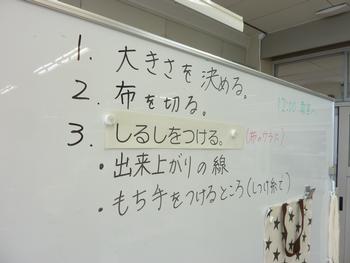 1. 大きさを決める。
2. 布を切る。
3. しるしをつける。(布のウラに)
・出来上がりの線
・もち手をつけるところ(しつけ糸で)
12:00